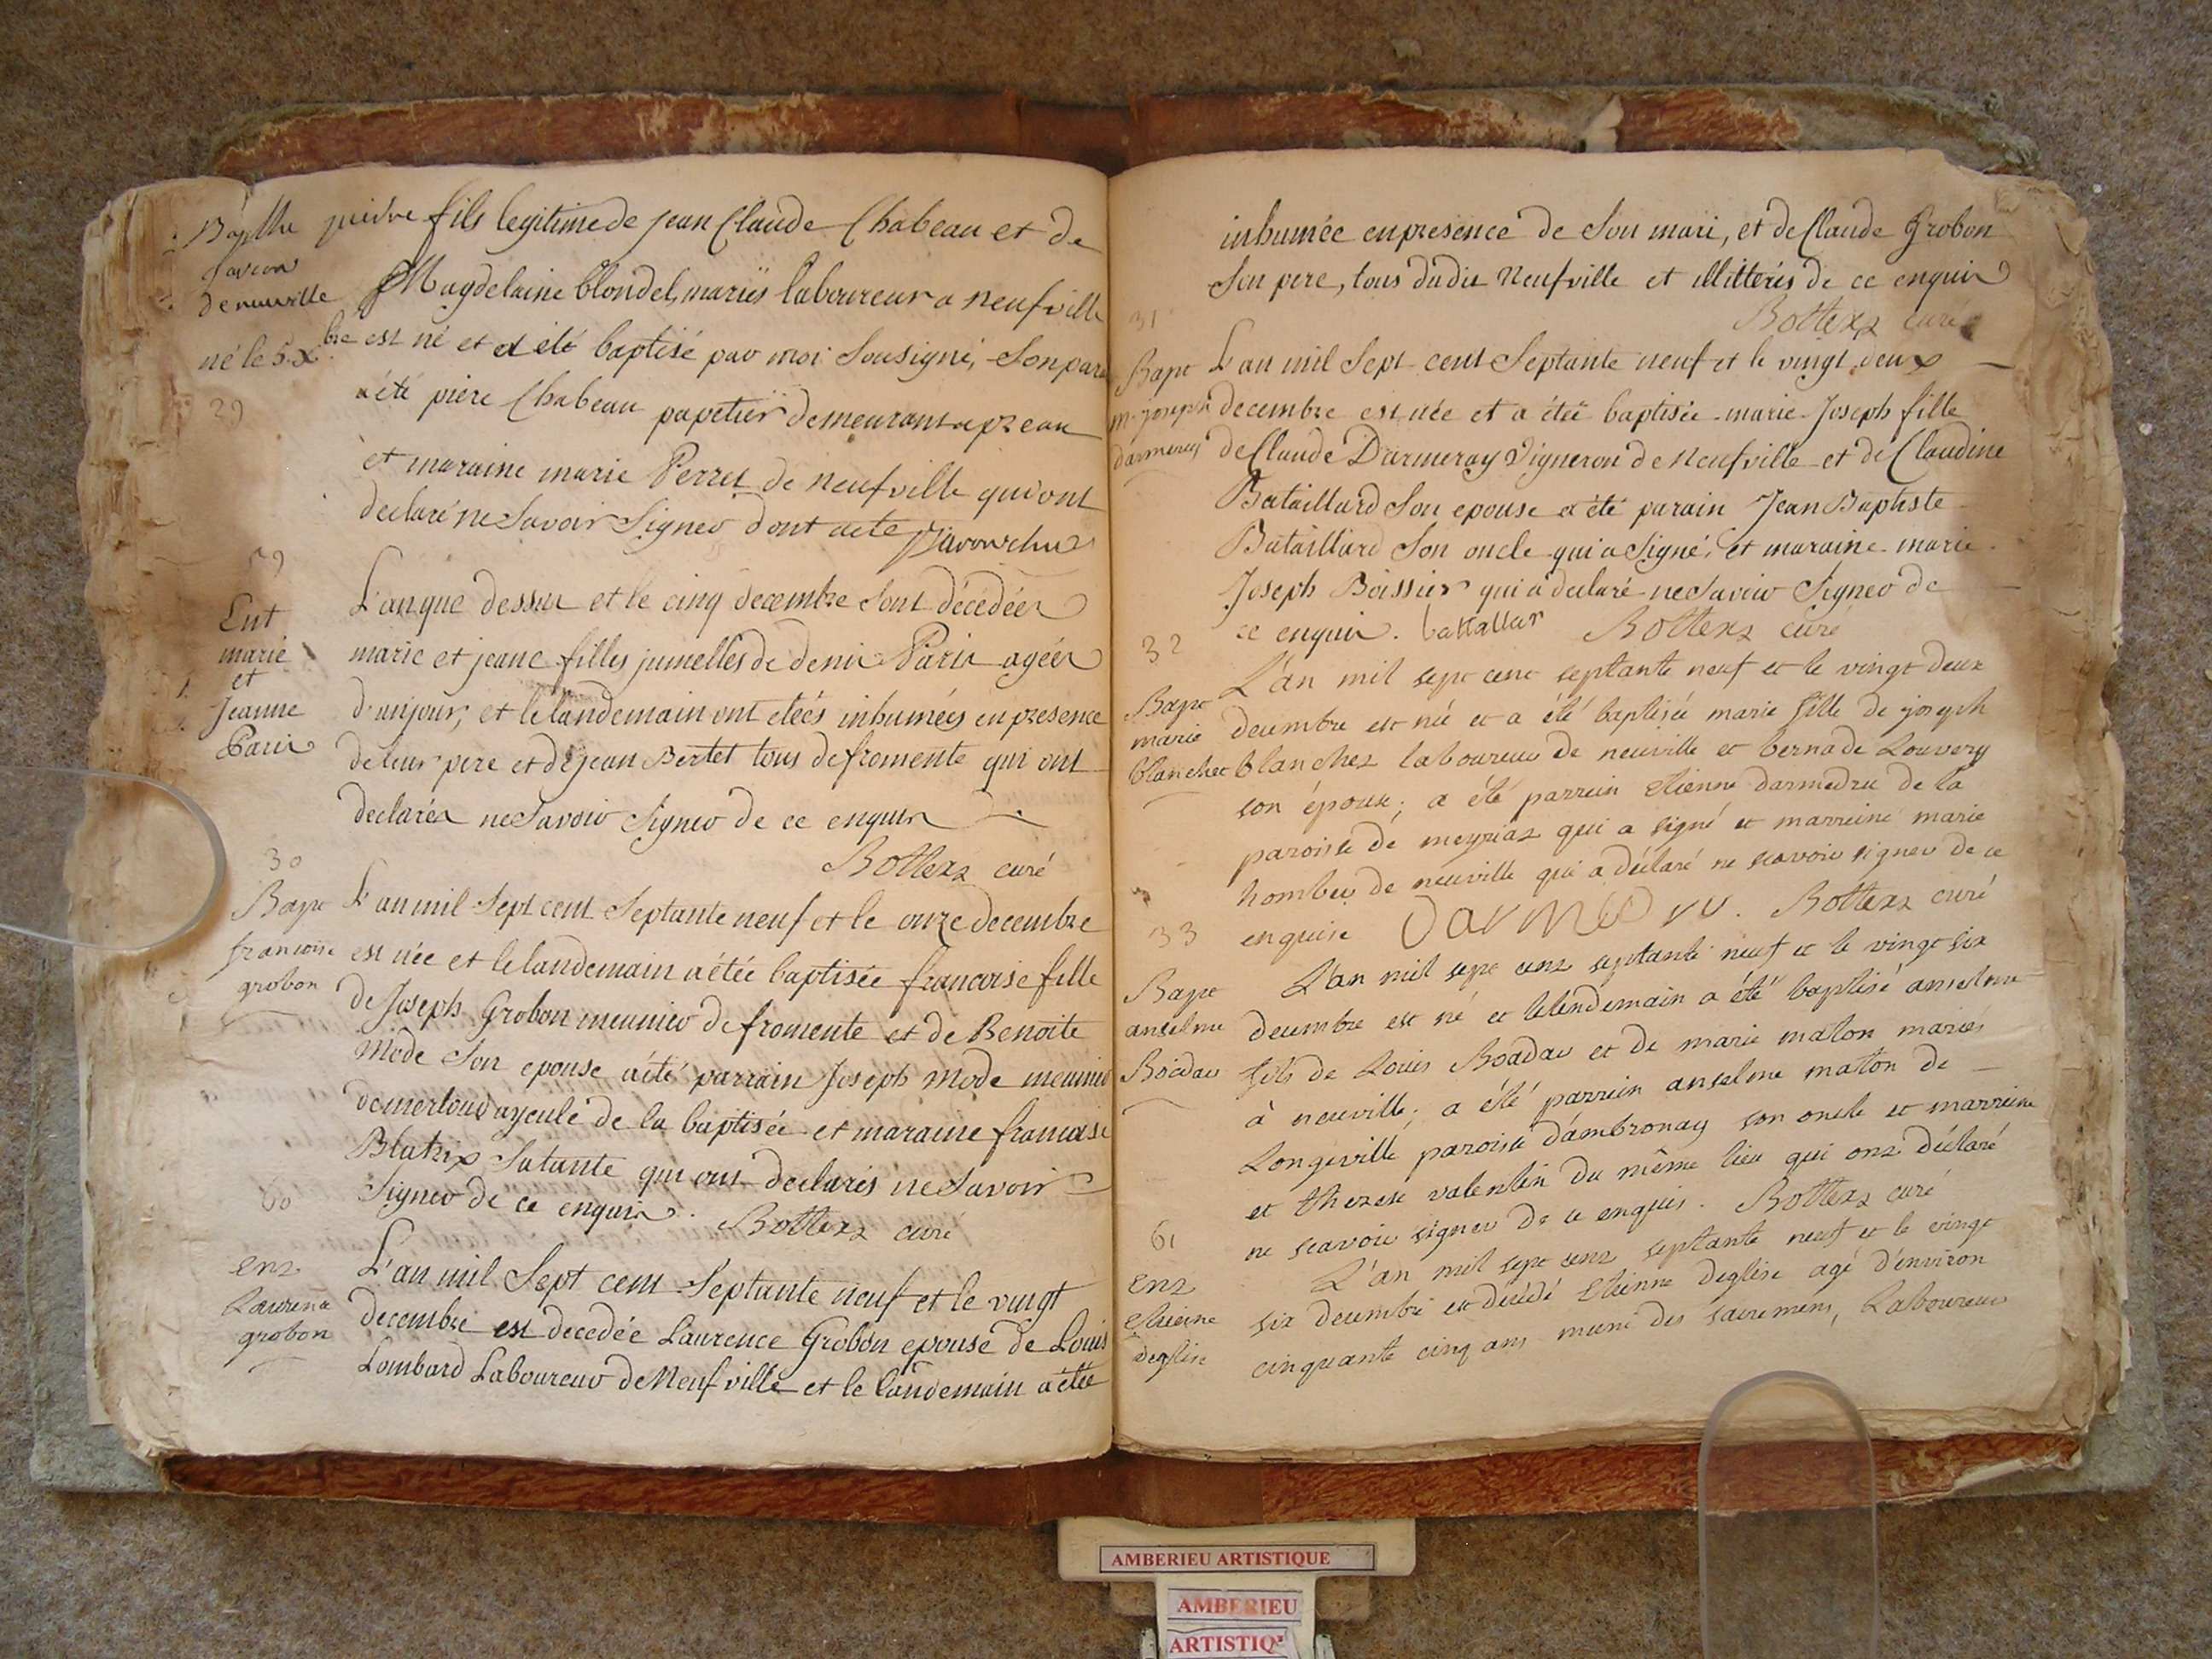 pierre fils legitime de jean Claude Chabeau et de
Magdelaine blondel, mariés laboureur a neufville
né le 5 xbre est né et a été baptisé par moi Sousigné, Son parain
29
a été piere Chabeau papetier demeurant a preau
et maraine marie Perret de neufville qui ont
declaré ne Savoir Signer dont acte
59
Ent
marie
et
Jeanne
Paris
L'an que dessus et le cinq decembre sont décédées
marie et jeane filles jumelles de denis Paris agées
d'un jour, et le landemain ont etées inhumées en presence
de leur pere et de jean Bertet tous de fromente qui ont
declarés ne Savoir Signer de ce enquis
Bottex curé
30
Bapt
francoise
grobon
L'an mil Sept cent Septante neuf et le onze decembre
est née et le landemain a étée baptisée francoise fille
de Joseph Grobon meunier de fromente et de Benoite
Mode Son epouse a été parrain Joseph Mode meunier
de merloud ayeule de la baptisée et maraine francoise
Blatrix Sa tante qui ont declarés ne Savoir
Signer de ce enquis. Bottex curé
60
ent
Laurence
grobon
L'an mil Sept cent Septante neuf et le vingt
decembre est decedée Laurence Grobon epouse de Louis
Lombard Laboureur de Neufville et le landemain a étée
inhumée en presence de Son mari, et de Claude Grobon
Son pere, tous dudit Neufville et illitterés de ce enquis
Bottex curé
31
Bapt
m. joseph
darmeray
L'an mil Sept cent Septante neuf et le vingt deux
decembre est née et a été baptisée marie Joseph fille
de Claude Darmeray Vigneron de Neufville et de Claudine
Bataillard Son epouse a été parain Jean Baptiste
Bataillard Son oncle qui a Signé, et maraine marie
Joseph Boissier qui a declaré ne Savoir Signer de
ce enquis. battallar Bottex curé
32
Bapt
marie
blanchet
L'an mil sept cent septante neuf et le vingt deux
decembre est née et a été baptisée marie fille de joseph
blanchet laboureur de neuville et bernade Louvery
son épouse; a été parrein etienne darmedru de la
paroisse de meyriaz qui a signé et marreine marie
hombert de neuville qui a déclaré ne scavoir signer de ce
enquise Darmedru. Bottex curé
33
Bapt
anselme
Boidar
L'an mil sept cent septante neuf et le vingt six
decembre est né et le lendemain a été baptisé anselme
fils de Louis Boadar et de marie maton mariés
à neuville; a été parrein anselme maton de
Longeville paroisse d'ambronay son oncle et marreine
et therese valentin du même lieu qui ont déclaré
ne scavoir signer de ce enquis. Bottex curé
61
ent
etienne
deglise
L'an mil sept cent septante neuf et le vingt
six decembre est décédé Etienne deglise agé d'environ
cinquante cinq ans muni des sacremens, Laboureur
AMBERIEU ARTISTIQUE
AMBERIEU
ARTISTIQ